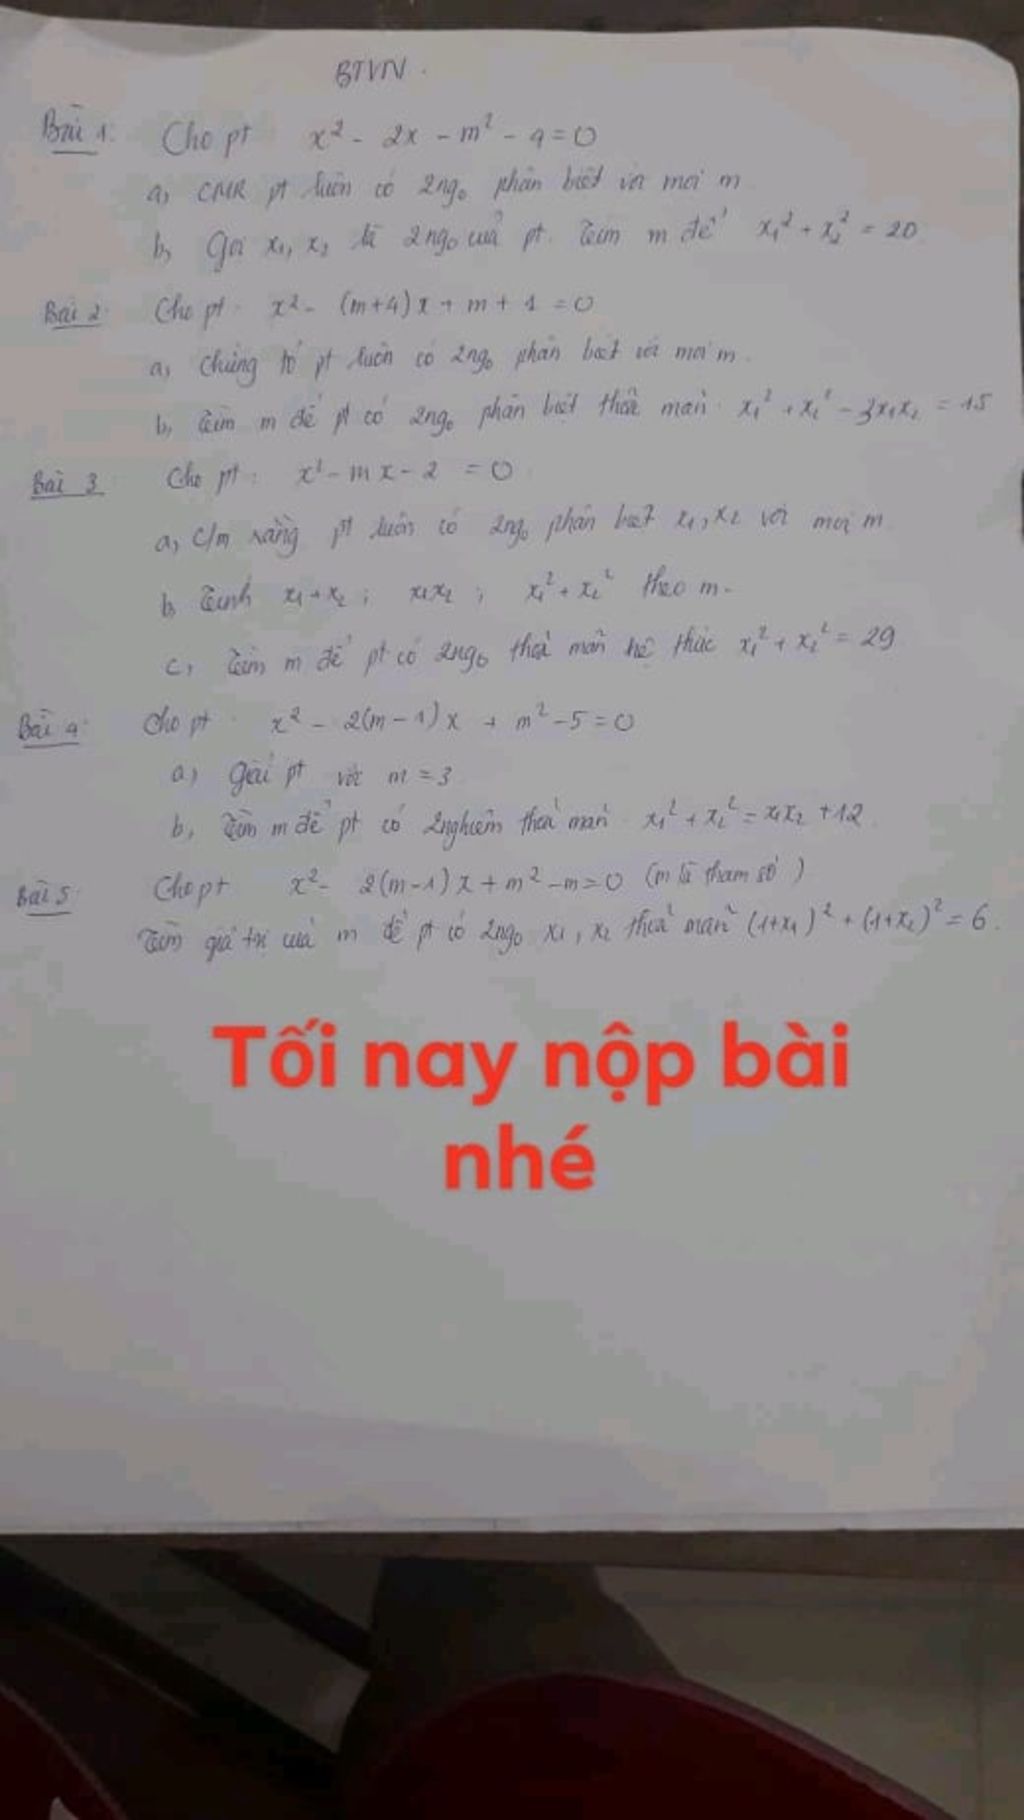 BTVN.
Bài 1: Cho pt x² - 2x - m² - 4 = 0
a, CMR pt luôn có 2ng₀ phân biệt với mọi m
b, Gọi x₁, x₂ là 2ng₀ của pt. Tìm m để x₁² + x₂² = 20
Bài 2: Cho pt. x² - (m+4)x + m + 1 = 0
a, Chứng tỏ pt luôn có 2ng₀ phân biệt với mọi m.
b, Tìm m để pt có 2ng₀ phân biệt thoả mãn x₁² + x₂² - 3x₁x₂ = 15
Bài 3 Cho pt: x² - mx - 2 = 0
a, c/m rằng pt luôn có 2ng₀ phân biệt x₁, x₂ với mọi m
b, Tính x₁ + x₂ ; x₁x₂ ; x₁² + x₂² theo m.
c, Tìm m để pt có 2ng₀ thoả mãn hệ thức x₁² + x₂² = 29
Bài 4: Cho pt x² - 2(m-1)x + m² - 5 = 0
a) Giải pt với m = 3
b, Tìm m để pt có 2nghiệm thoả mãn x₁² + x₂² = x₁x₂ + 12
Bài 5: Cho pt x² - 2(m-1)x + m² - m = 0 (m là tham số)
Tìm giá trị của m để pt có 2ng₀ x₁, x₂ thoả mãn (1+x₁)² + (1+x₂)² = 6.
Tối nay nộp bài
nhé